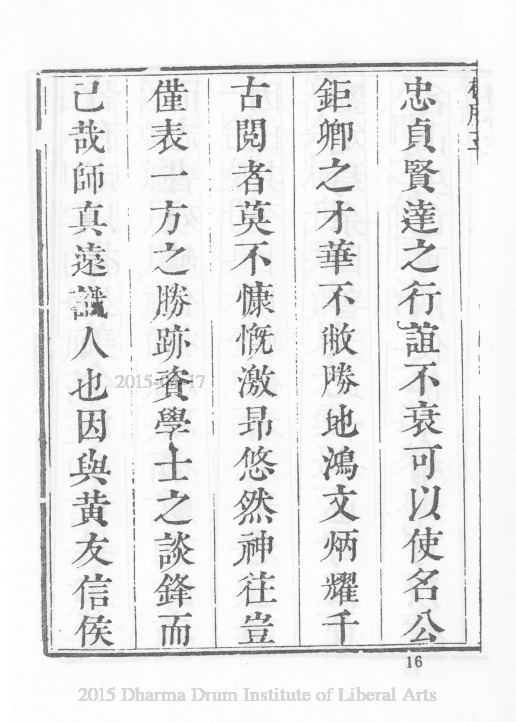 忠貞賢達之行誼不衰可以使名公
鉅卿之才華不敝勝地鴻文炳耀千
古閱者莫不慷慨激昂悠然神往豈
僅表一方之勝跡資學士之談鋒而
已哉師真遠識人也因與黃友信侯
16
2015 Dharma Drum Institute of Liberal Arts